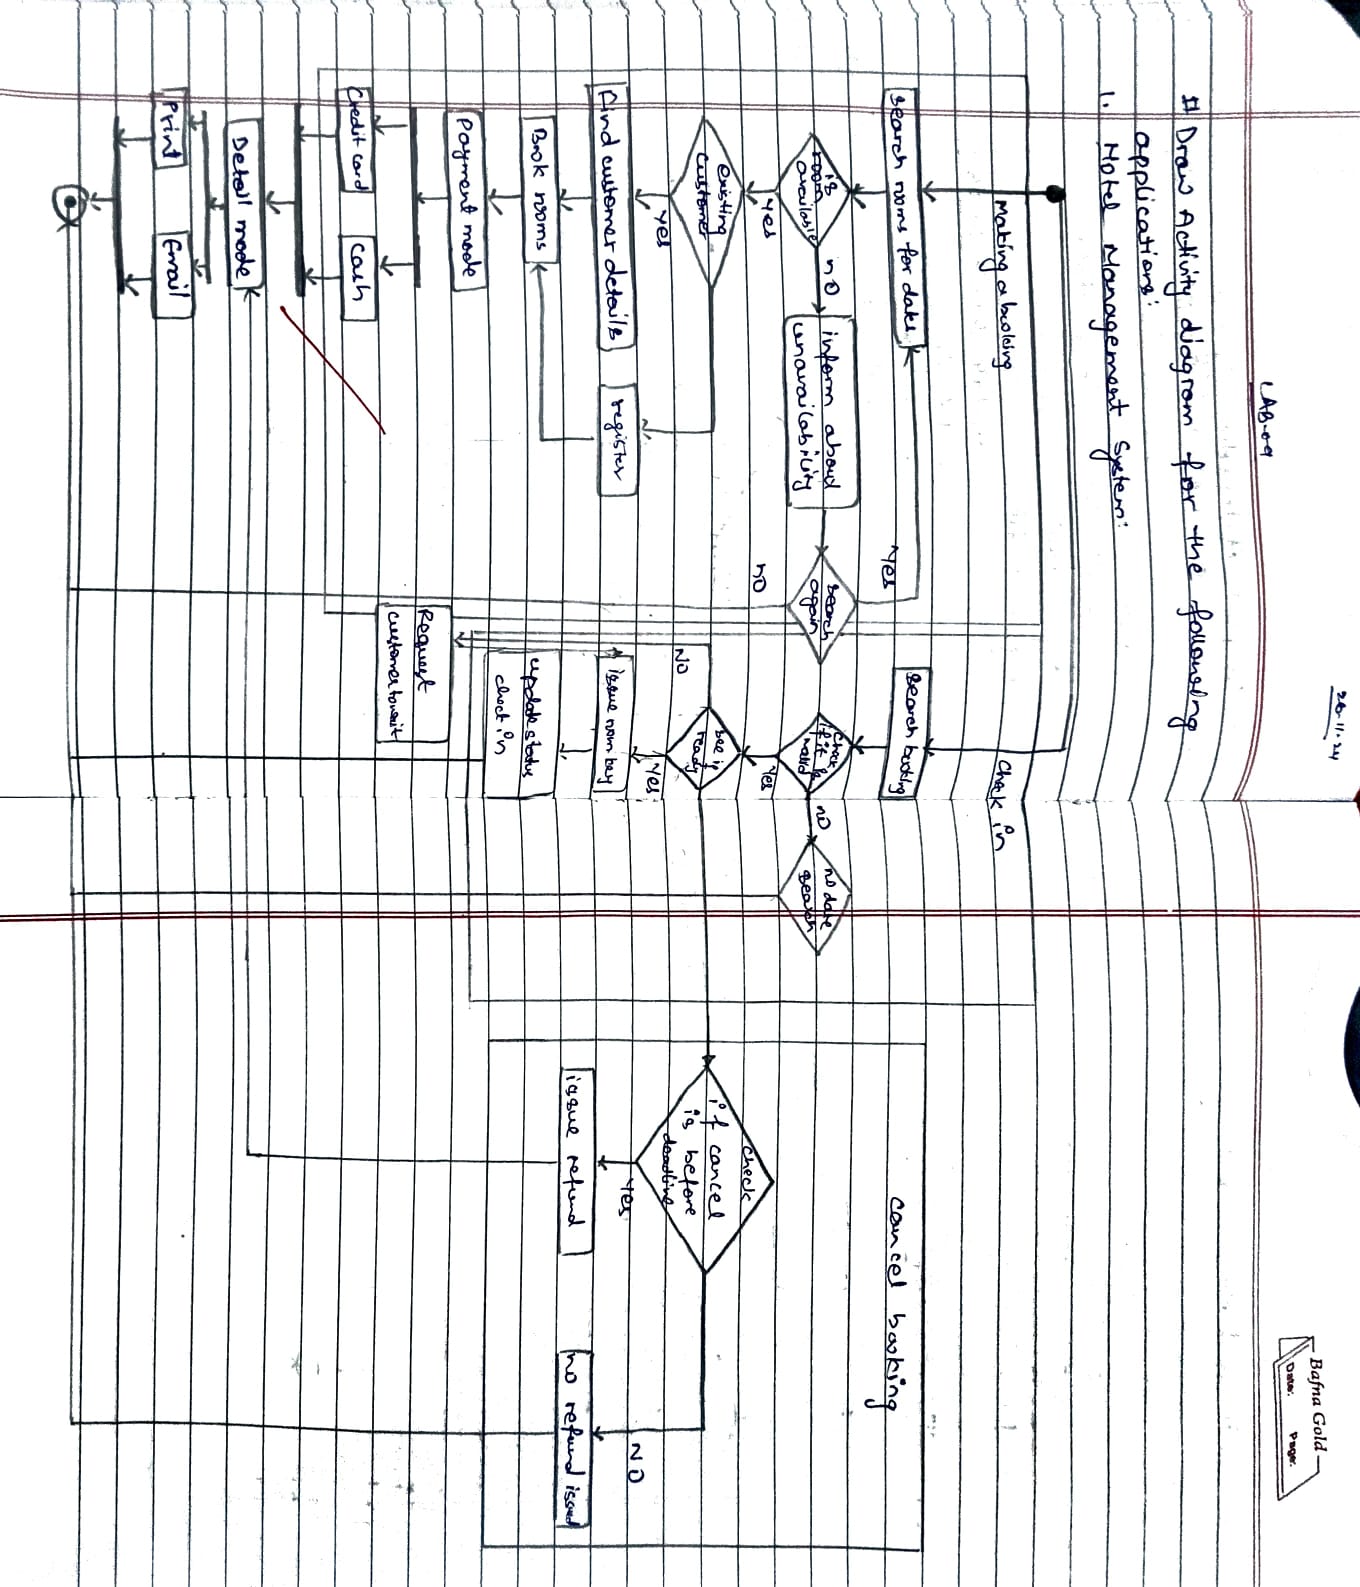 LAB-09
26-11-24
Bafna Gold
Date:
Page:
# Draw Activity diagram for the following
applications:
1. Hotel Management System:
Making a booking
Search rooms for date
is
room
available
no
inform about
unavailability
Search
again
Yes
NO
Yes
existing
customer
Yes
find customer details
register
Book rooms
Payment mode
Credit card
Cash
Detail mode
Print
Email
Check in
Search booking
Check
if it is
valid
no
no date
search
Yes
see if
ready
NO
Yes
issue room key
update status
check in
Request
customer to wait
Cancel booking
Check
if cancel
is before
deadline
Yes
NO
issue refund
no refund issued